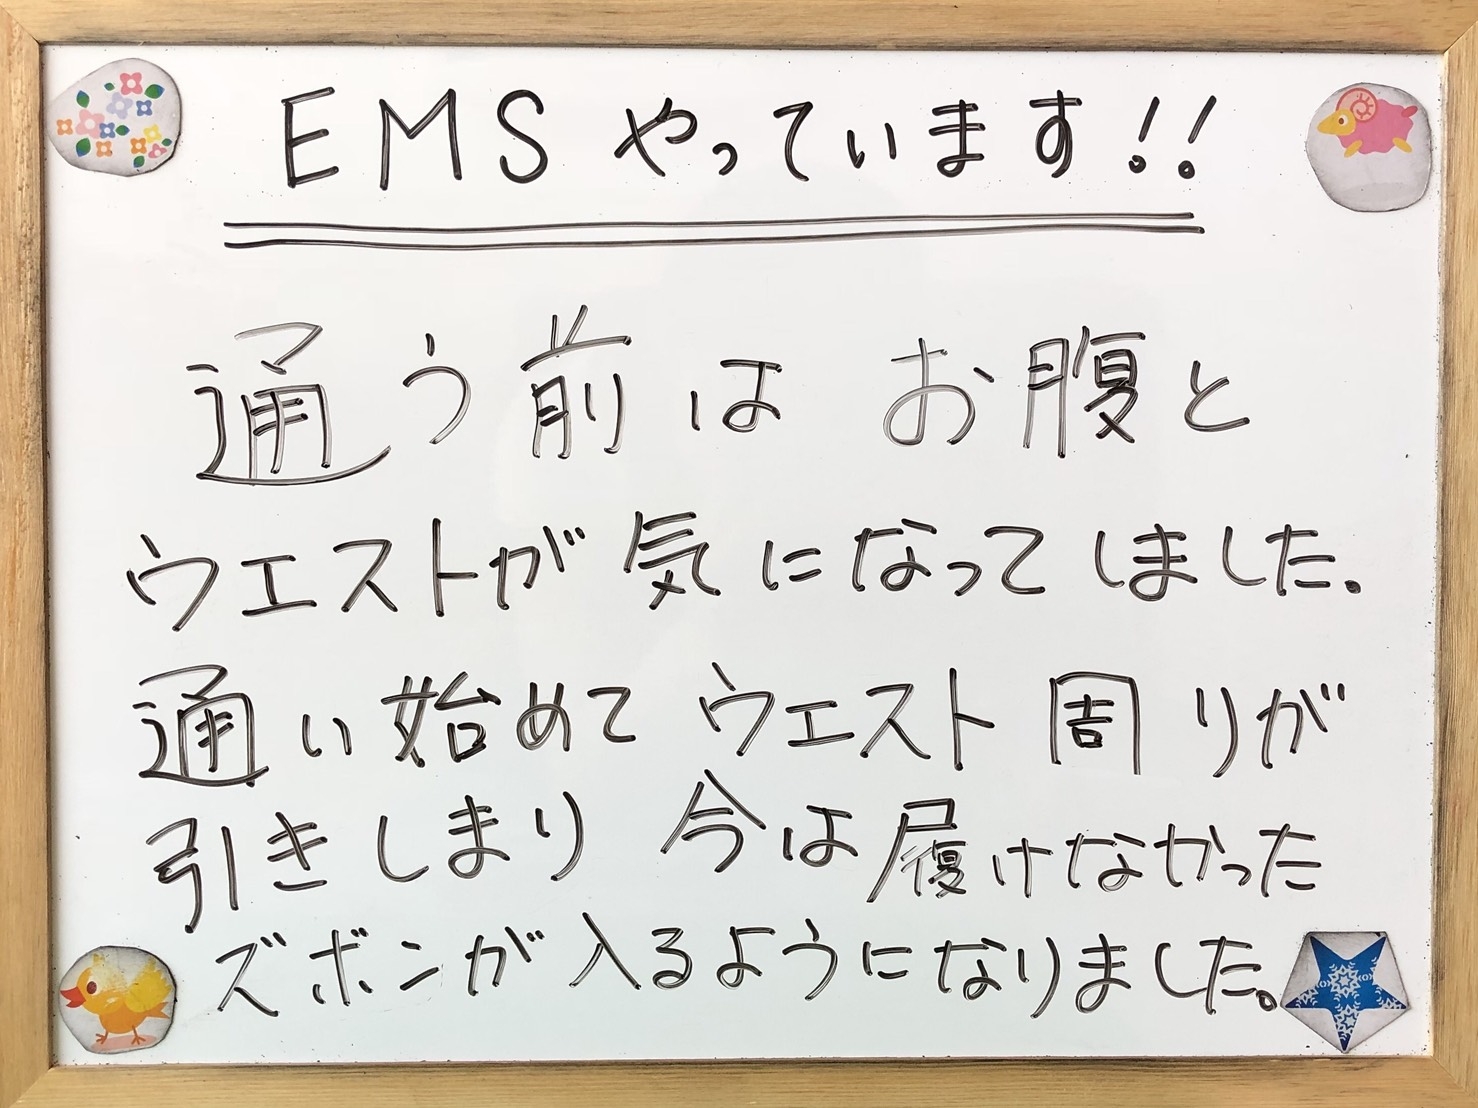 EMS やっています!!
通う前は お腹と
ウエストが気になってしました。
通い始めて ウエスト周りが
引きしまり 今は履けなかった
ズボンが入るようになりました。